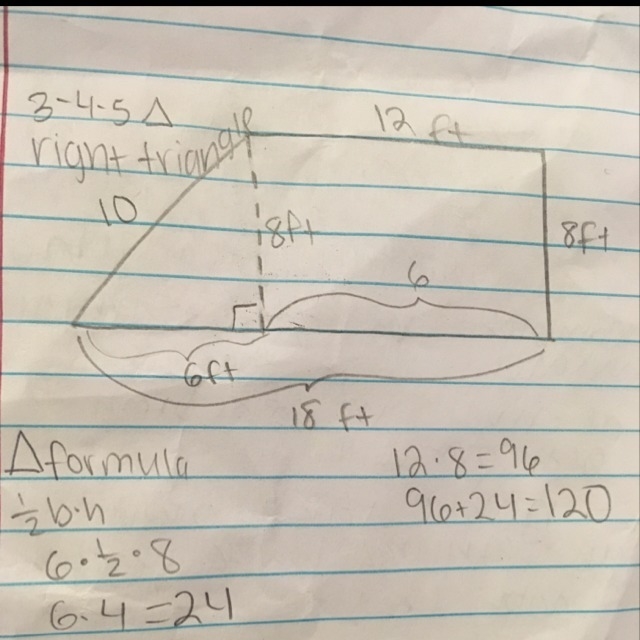 3-4-5 △
right triangle
12 ft
10
8ft
8ft
6
6ft
18 ft
△formula
½b·h
6·½·8
6·4=24
12·8=96
96+24=120